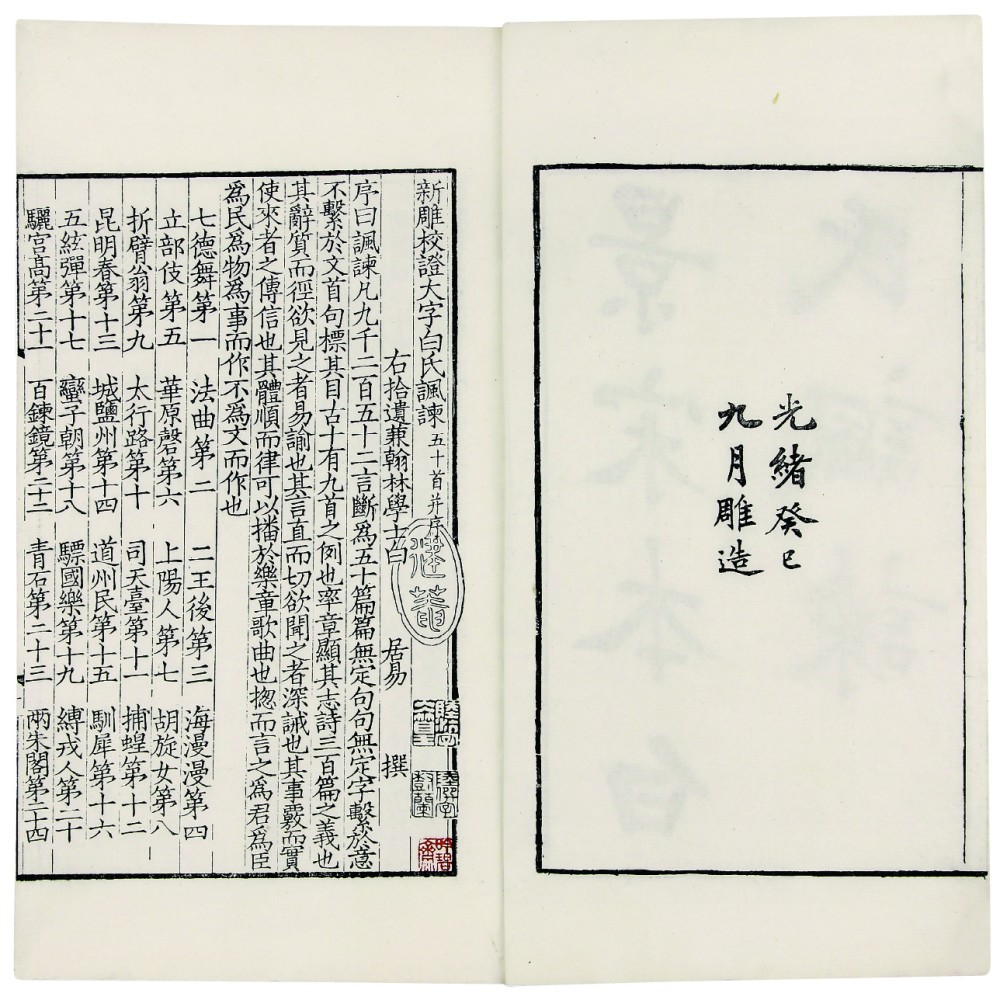 光緒癸巳
九月雕造
新雕校證大字白氏諷諫五十首并序
右拾遺兼翰林學士白 居易 撰
序曰諷諫凡九千二百五十二言斷為五十篇篇無定句句無定字繫於意
不繫於文首句標其目古十有九首之例也率章顯其志詩三百篇之義也
其辭質而徑欲見之者易諭也其言直而切欲聞之者深誡也其事覈而實
使來者之傳信也其體順而律可以播於樂章歌曲也揔而言之為君為臣
為民為物為事而作不為文而作也
七德舞第一 法曲第二 二王後第三 海漫漫第四
立部伎第五 華原磬第六 上陽人第七 胡旋女第八
折臂翁第九 太行路第十 司天臺第十一 捕蝗第十二
昆明春第十三 城鹽州第十四 道州民第十五 馴犀第十六
五絃彈第十七 蠻子朝第十八 驃國樂第十九 縛戎人第二十
驪宮高第二十一 百鍊鏡第二十二 青石第二十三 兩朱閣第二十四